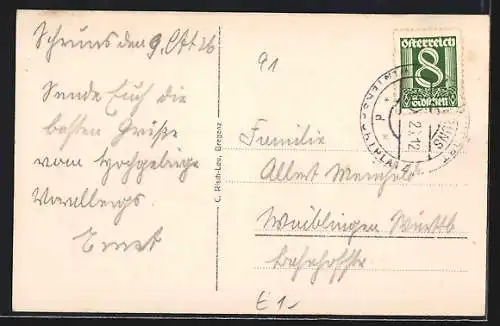 Schruns den 9. Okt 26
Sende Euch die
besten Grüße
vom Hochgebirge
Vorarlbergs.
Ernst
C. Risch-Lau, Bregenz
91
österreich
8
Groschen
Familie
Albert
Waiblingen Württb
Bahnhofstr
E 1-